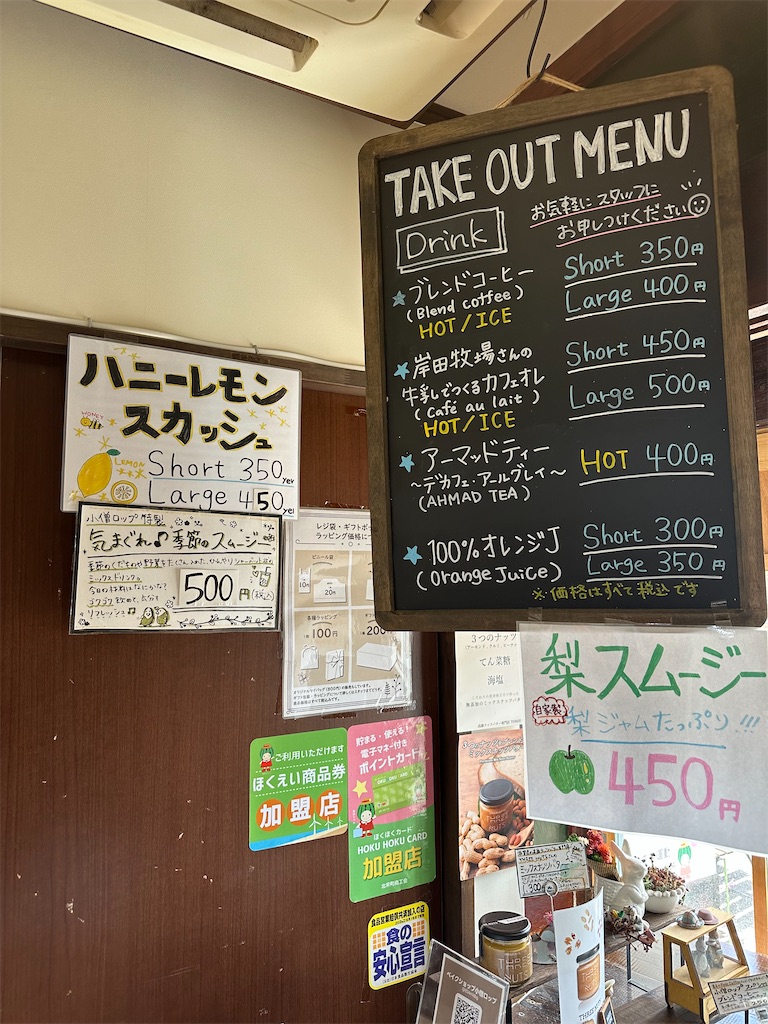 TAKE OUT MENU
お気軽に スタッフに
お申しつけください
Drink
ブレンドコーヒー
(Blend coffee)
HOT/ICE
Short 350円
Large 400円
岸田牧場さんの
牛乳でつくるカフェオレ
(Café au lait)
HOT/ICE
Short 450円
Large 500円
アーマッドティー
～デカフェ・アールグレイ～
(AHMAD TEA)
HOT 400円
100%オレンジJ
(Orange Juice)
Short 300円
Large 350円
※価格はすべて税込です
ハニーレモン
スカッシュ
HONEY
LEMON
Short 350yen
Large 450yen
小僧ロップ特製
気まぐれ♪季節のスムージー
ミックスドリンク♪
500円(税込)
リフレッシュ♫
レジ袋・ギフトボ
ラッピング価格につ
ビニール袋
10円
20円
各種ラッピング
100円
200
3つのナッツ
てん菜糖
海塩
梨スムージー
自家製
梨ジャムたっぷり!!!
450円
ご利用いただけます
ほくえい商品券
加盟店
貯まる・使える!
電子マネー付き
ポイントカード
ほくほくカード
HOKU HOKU CARD
加盟店
北栄町商工会
食品営業賠償共済加入の店
食の
安心宣言
ミックスナッツバター
THREE
NUTS
ベイクショップ小僧ロップ